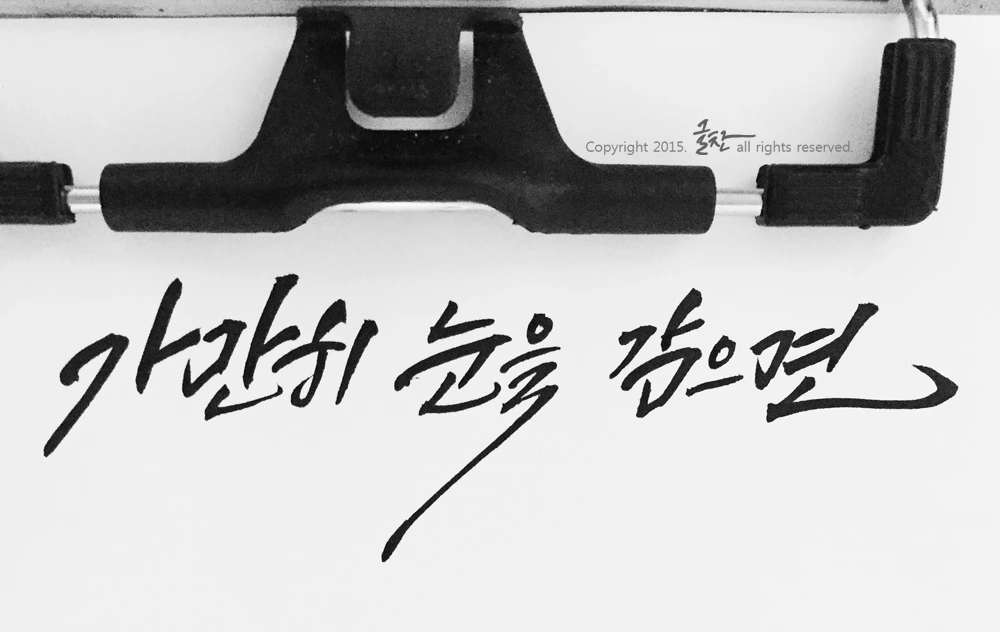 Copyright 2015. 글찬 all rights reserved.
가만히 눈을 감으면